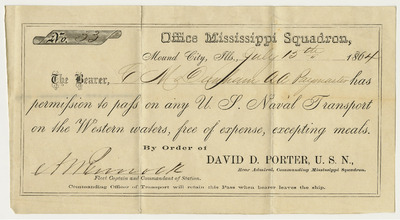 No. 53
Office Mississippi Squadron,
Mound City, Ills., July 15th 1864
The Bearer, A A Paymaster has
permission to pass on any U. S. Naval Transport
on the Western waters, free of expense, excepting meals.
By Order of
DAVID D. PORTER, U. S. N.,
Rear Admiral, Commanding Mississippi Squadron.
A M Pennock
Fleet Captain and Commandant of Station.
Commanding Officer of Transport will retain this Pass when bearer leaves the ship.